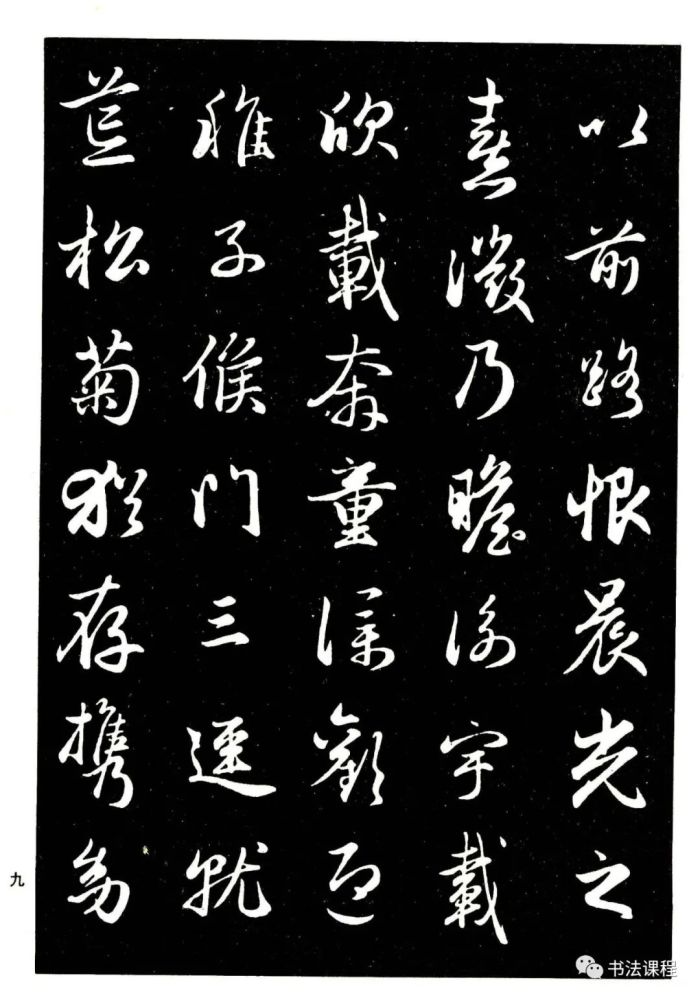 以前路恨晨光之
熹微乃瞻衡宇載
欣載奔童僕歡迎
稚子候門三逕就
荒松菊猶存攜幼
九
书法课程